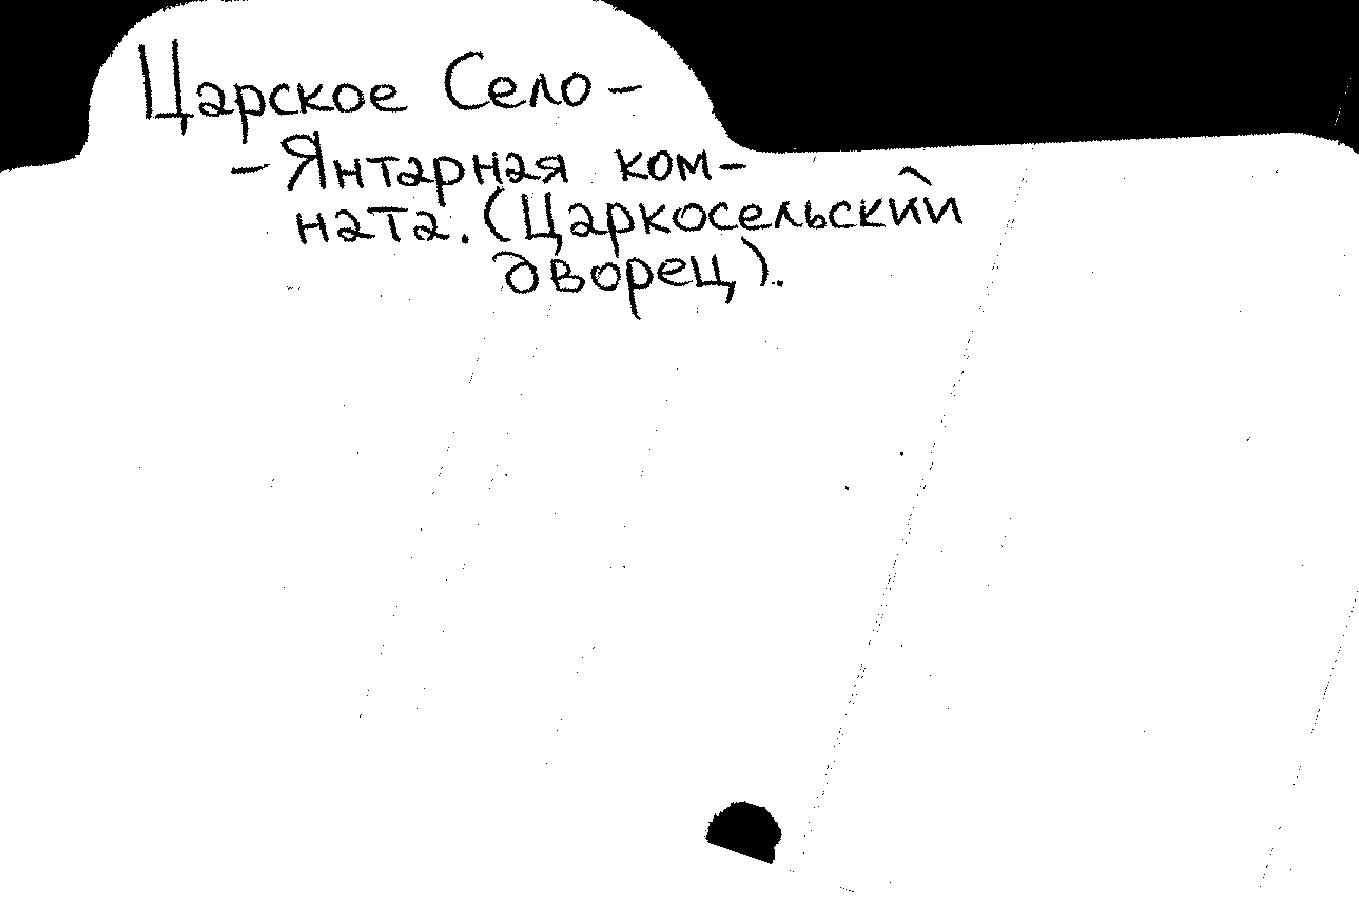 Царское Село -
- Янтарная ком-
ната. (Царкосельский
дворец).